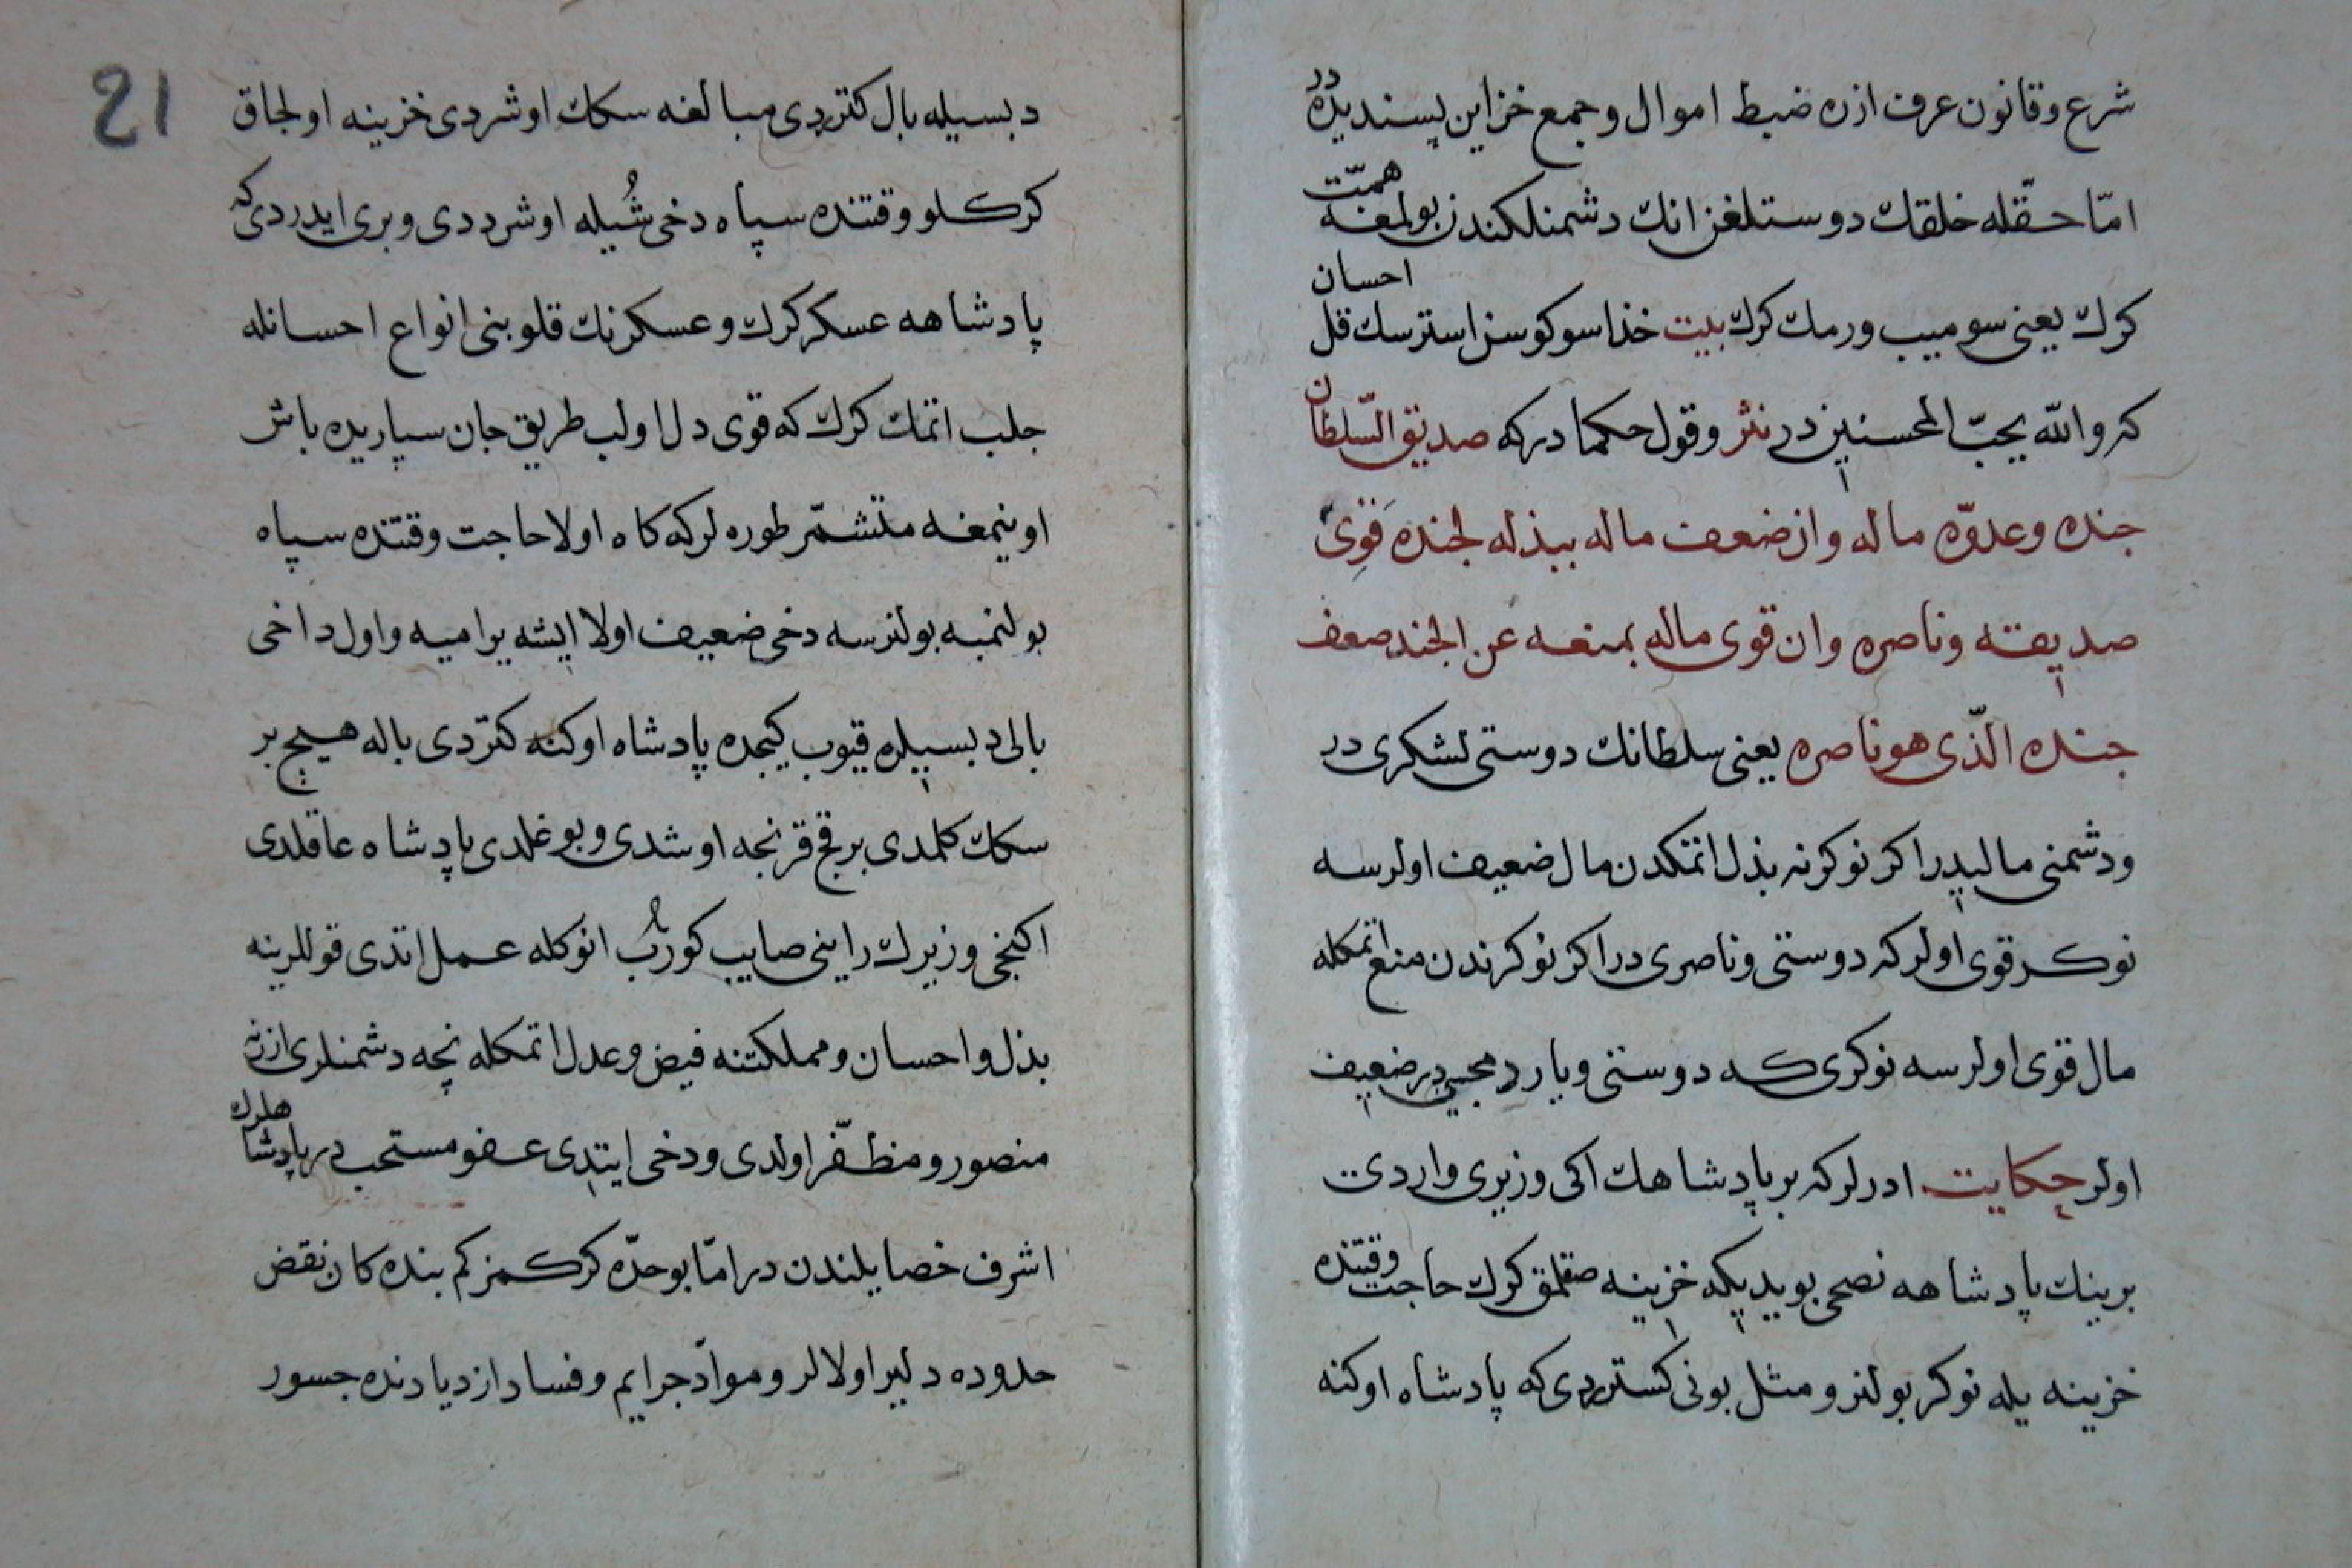 شرع و قانون عرف ازره ضبط اموال و جمع خزاین پسندیده در
امّا حقّله خلقك دوستلغن انك دشمنلكندن بولمغه همّت
كرك یعنی سومیب ورمك كرك بیت خذا سوكوسن استرسك قل احسان
كه والله یحبّ المحسنین در نثر و قول حكما در كه صدیق السّلطان
جنده و عدوّه ماله وان ضعف ماله ببذله لجنده قوی
صدیقه و ناصره وان قوی ماله بمنعه عن الجند ضعف
جنده الّذی هو ناصره یعنی سلطانك دوستی لشكری در
و دشمنی مالیدر اكر نوكرنه بذل اتمكدن مال ضعیف اولرسه
نوكر قوی اولر كه دوستی و ناصری در اكر نوكرندن منع اتمكله
مال قوی اولرسه نوكری كه دوستی و یاردمجیسی در ضعیف
اولر حكایت ادرلر كه بر پادشاهك اكی وزیری واردی
برینك پادشاهه نصحی بویدیكه خزینه صقلمق كرك حاجت وقتنده
خزینه یله نوكر بولنر و مثل بونی كستردی كه پادشاه اوكنه
21
دبسیله بال كتردی مبالغه سكك اوشردی خزینه اولجاق
كركلو وقتنده سپاه دخی شُیله اوشرددی و بری ایدردی كه
پادشاهه عسكر كرك و عسكرنك قلوبنی انواع احسانله
جلب اتمك كرك كه قوی دل اولب طریق جان سپاریده باش
اوینمغه متشمّر طوره لر كه كاه اولا حاجت وقتنده سپاه
بولنمیه بولنرسه دخی ضعیف اولا ایشه یرامیه و اول داخی
بالی دبسیله قیوب كیجده پادشاه اوكنه كتردی باله هیچ بر
سكك كلمدی بر قچ قرنجه اوشدی و بوغلدی پادشاه عاقلدی
اكنجی وزیرك راینی صایب كورُب انوكله عمل اتدی قوللرینه
بذل و احسان و مملكتنه فیض و عدل اتمكله نچه دشمنلری ازرنه
منصور و مظفّر اولدی و دخی ایتدی عفو مستحب در پادشاهلرك
اشرف خصایلندن در امّا بو حدّه كركمز كم بنده كان نقض
حدوده دلیر اولالر و موادّ جرایم و فساد ازدیادنده جسور